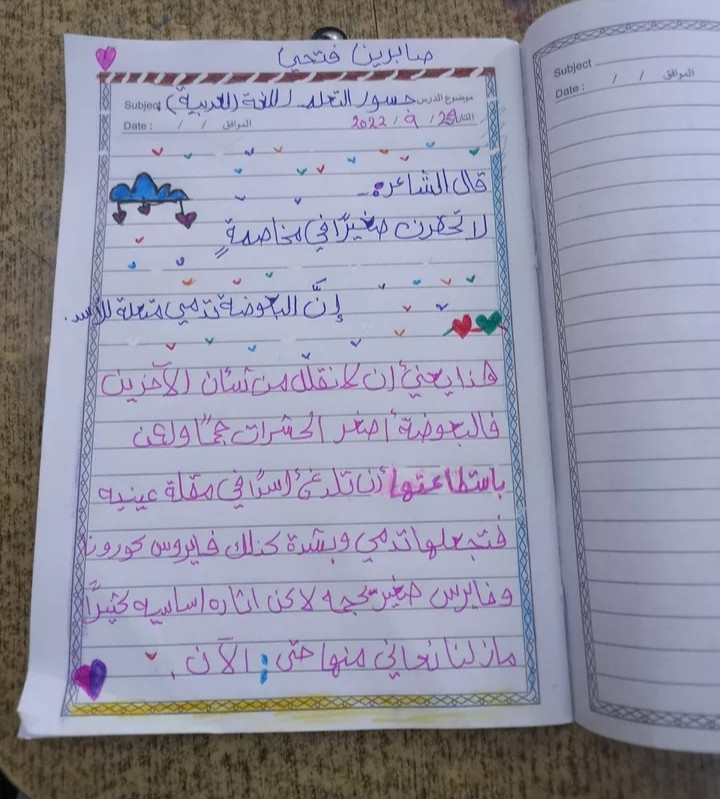 صابرين فتحي
Subject جسور التعلم (اللغة العربية) موضوع الدرس
Date : / / الموافق 2022 / 9 / 29
قال الشاعر :ـ
لا تحقرن صغيرًا في مخاصمةٍ
إنَّ البعوضة تدمي مقلة الأسد.
هذا يعني أن لا نقلل من شأن الآخرين
فالبعوضة أصغر الحشرات حجمًا ولكن
باستطاعتها أن تلدغ أسدًا في مقلة عينيه
فتجعلها تدمي وبشدة كذلك فايروس كورونا
وفايرس صغير بحجمه لاكن اثاره اساسيه كثيرًا
مازلنا نعاني منها حتى الآن .
Subject
Date : / / الموافق